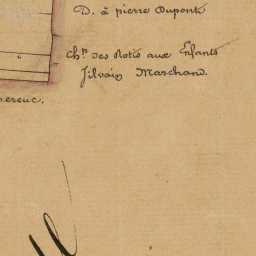 D. à pierre Dupont
Ch.ⁿ des Rotis aux Enfants
Silvain Marchand.